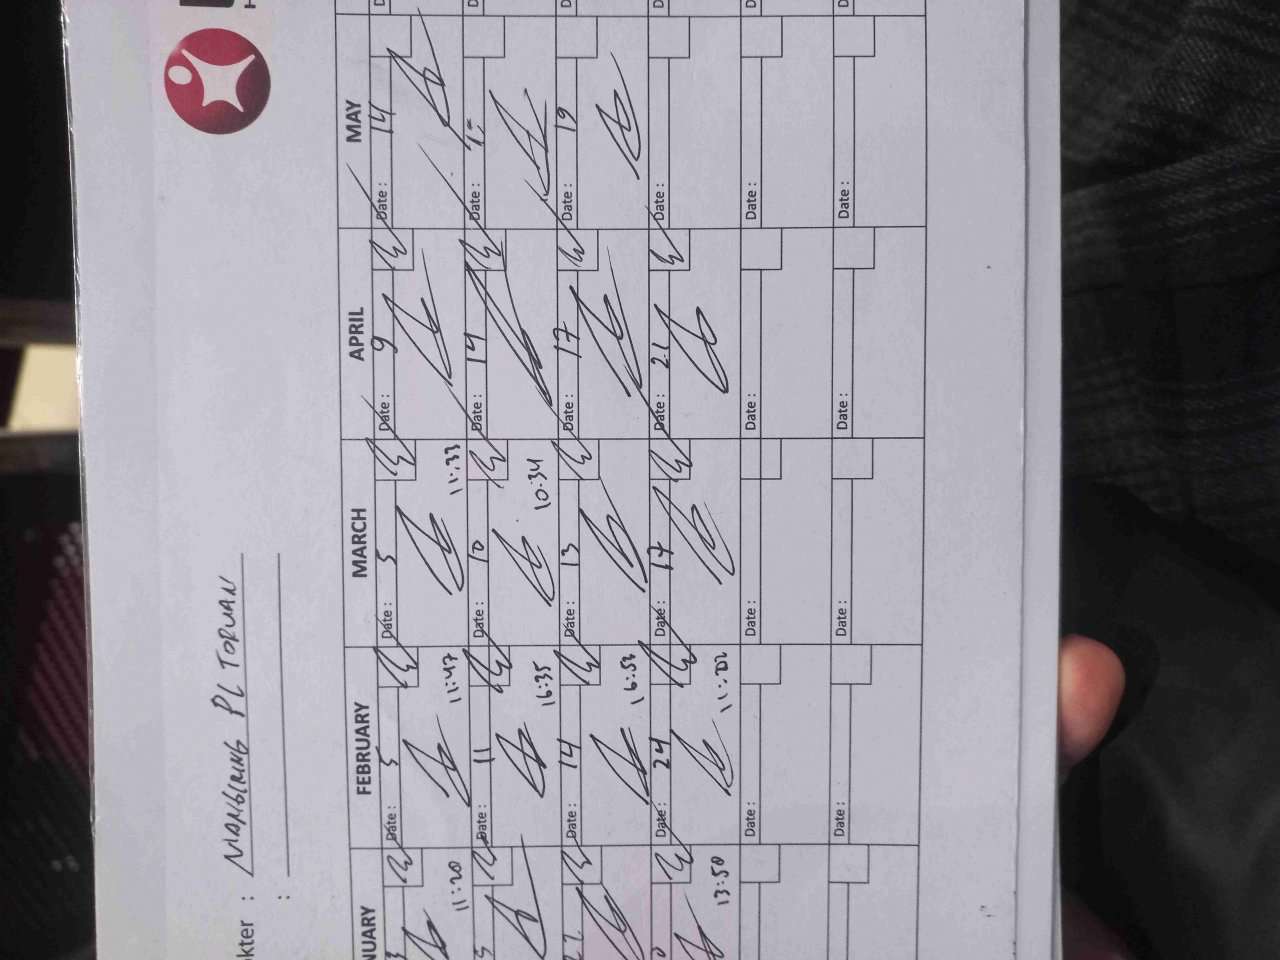 kter : MANGIRING PL TORUAN
:
NUARY FEBRUARY MARCH APRIL MAY
3 Date : 5 Date : 5 Date : 9 Date : 14
11:20 11:47 11:33
5 Date : 11 Date : 10 Date : 14 Date :
16:35 10:34
22 Date : 14 Date : 13 Date : 17 Date : 19
16:53
0 Date : 24 Date : 17 Date : 21 Date :
13:50 11:02
Date : Date : Date : Date :
Date : Date : Date : Date :